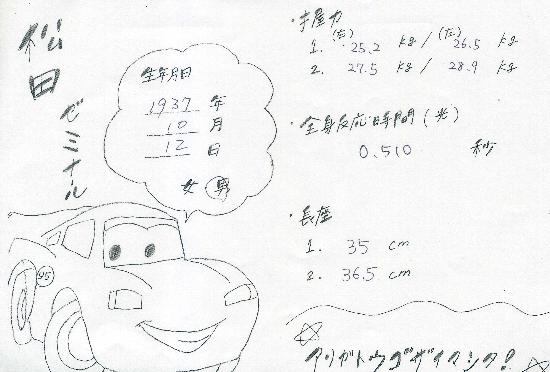 松田
ゼミナール
生年月日
1937年
10月
12日
女 男
・握力
(右) (左)
1. 25.2 kg / 26.5 kg
2. 27.5 kg / 28.9 kg
・全身反応時間(光)
0.510 秒
・長座
1. 35 cm
2. 36.5 cm
95
アリガトウゴザイマシタ!